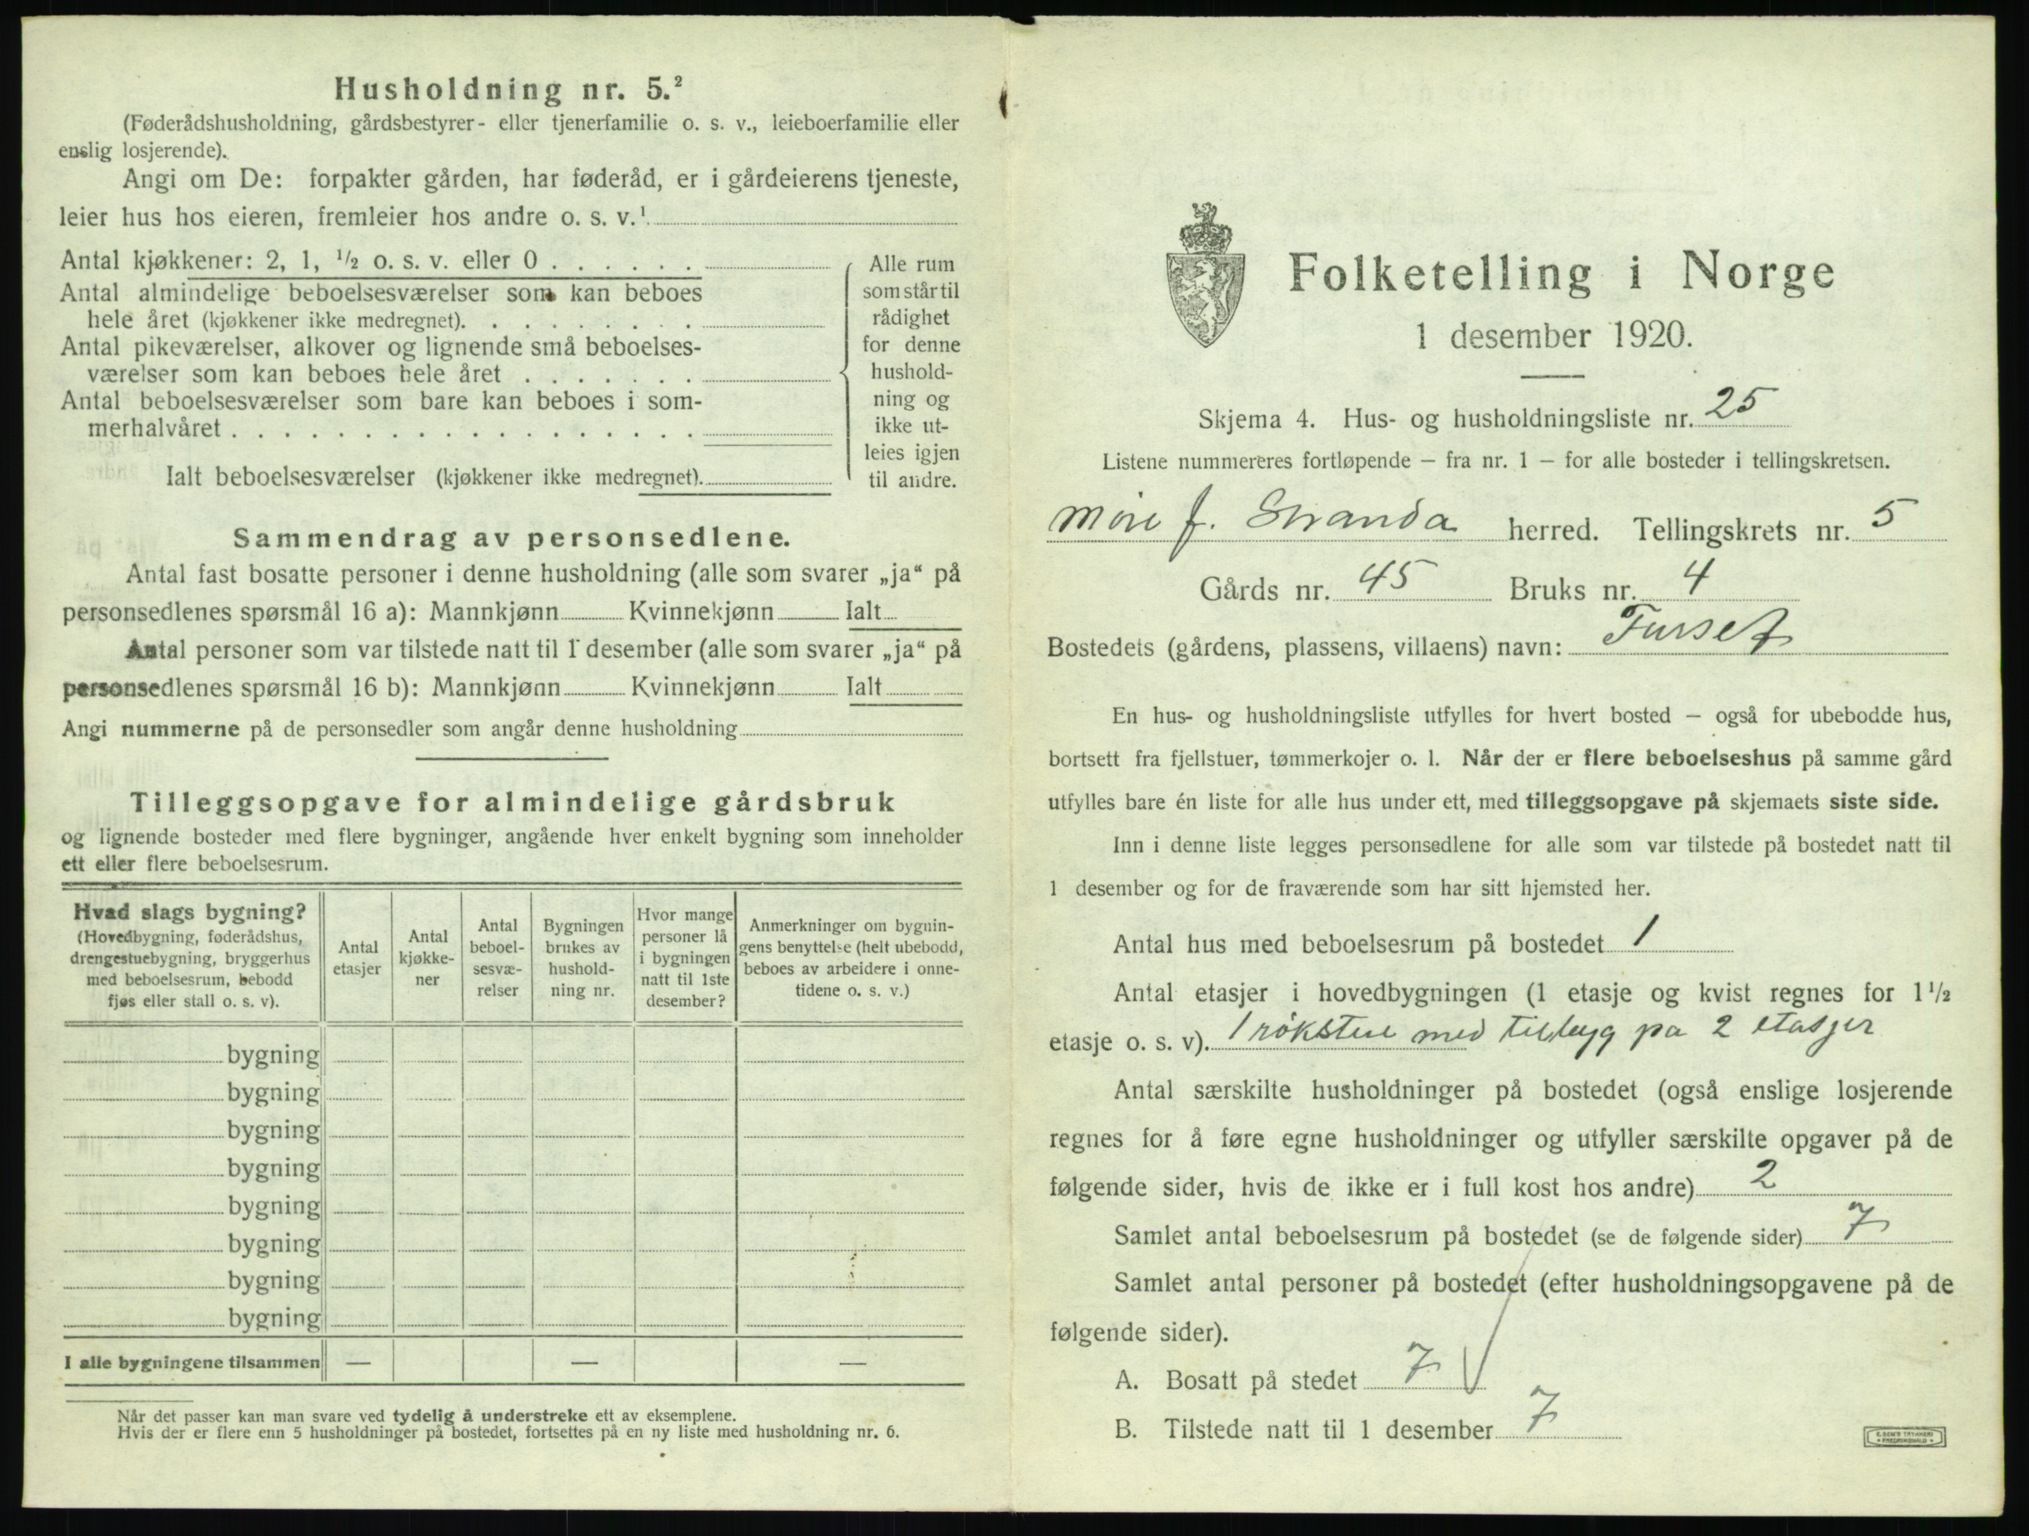 Husholdning nr. 5.²
(Føderådshusholdning, gårdsbestyrer- eller tjenerfamilie o. s. v., leieboerfamilie eller
enslig losjerende).
Angi om De: forpakter gården, har føderåd, er i gårdeierens tjeneste,
leier hus hos eieren, fremleier hos andre o. s. v.¹
Antal kjøkkener: 2, 1, ¹/₂ o. s. v. eller 0 . . . . . .
Antal almindelige beboelsesværelser som kan beboes
hele året (kjøkkener ikke medregnet). . . . . . . . .
Antal pikeværelser, alkover og lignende små beboelses-
værelser som kan beboes hele året . . . . . . .
Antal beboelsesværelser som bare kan beboes i som-
merhalvåret . . . . . . . . . . . . . . . . . .
Ialt beboelsesværelser (kjøkkener ikke medregnet).
Alle rum
som står til
rådighet
for denne
hushold-
ning og
ikke ut-
leies igjen
til andre.
Sammendrag av personsedlene.
Antal fast bosatte personer i denne husholdning (alle som svarer „ja“ på
personsedlenes spørsmål 16 a): Mannkjønn Kvinnekjønn Ialt
Antal personer som var tilstede natt til 1 desember (alle som svarer „ja“ på
personsedlenes spørsmål 16 b): Mannkjønn Kvinnekjønn Ialt
Angi nummerne på de personsedler som angår denne husholdning
Tilleggsopgave for almindelige gårdsbruk
og lignende bosteder med flere bygninger, angående hver enkelt bygning som inneholder
ett eller flere beboelsesrum.
Hvad slags bygning?
(Hovedbygning, føderådshus,
drengestuebygning, bryggerhus
med beboelsesrum, bebodd
fjøs eller stall o. s. v).
Antal
etasjer
Antal
kjøkke-
ner
Antal
beboel-
sesvæ-
relser
Bygningen
brukes av
hushold-
ning nr.
Hvor mange
personer lå
i bygningen
natt til 1ste
desember?
Anmerkninger om bygnin-
gens benyttelse (helt ubebodd,
beboes av arbeidere i onne-
tidene o. s. v.)
bygning
bygning
bygning
bygning
bygning
bygning
bygning
bygning
I alle bygningene tilsammen — — —
Når det passer kan man svare ved tydelig å understreke ett av eksemplene.
Hvis der er flere enn 5 husholdninger på bostedet, fortsettes på en ny liste med husholdning nr. 6.
Folketelling i Norge
1 desember 1920.
Skjema 4. Hus- og husholdningsliste nr. 25
Listene nummereres fortløpende — fra nr. 1 — for alle bosteder i tellingskretsen.
Møre f. Stranda herred. Tellingskrets nr. 5
Gårds nr. 45 Bruks nr. 4
Bostedets (gårdens, plassens, villaens) navn: Furset
En hus- og husholdningsliste utfylles for hvert bosted — også for ubebodde hus,
bortsett fra fjellstuer, tømmerkojer o. l. Når der er flere beboelseshus på samme gård
utfylles bare én liste for alle hus under ett, med tilleggsopgave på skjemaets siste side.
Inn i denne liste legges personsedlene for alle som var tilstede på bostedet natt til
1 desember og for de fraværende som har sitt hjemsted her.
Antal hus med beboelsesrum på bostedet 1
Antal etasjer i hovedbygningen (1 etasje og kvist regnes for 1 ¹/₂
etasje o. s. v). 1 røkstue med tilbyg på 2 etasjer
Antal særskilte husholdninger på bostedet (også enslige losjerende
regnes for å føre egne husholdninger og utfyller særskilte opgaver på de
følgende sider, hvis de ikke er i full kost hos andre) 2
Samlet antal beboelsesrum på bostedet (se de følgende sider) 7
Samlet antal personer på bostedet (efter husholdningsopgavene på de
følgende sider).
A. Bosatt på stedet 7
B. Tilstede natt til 1 desember 7